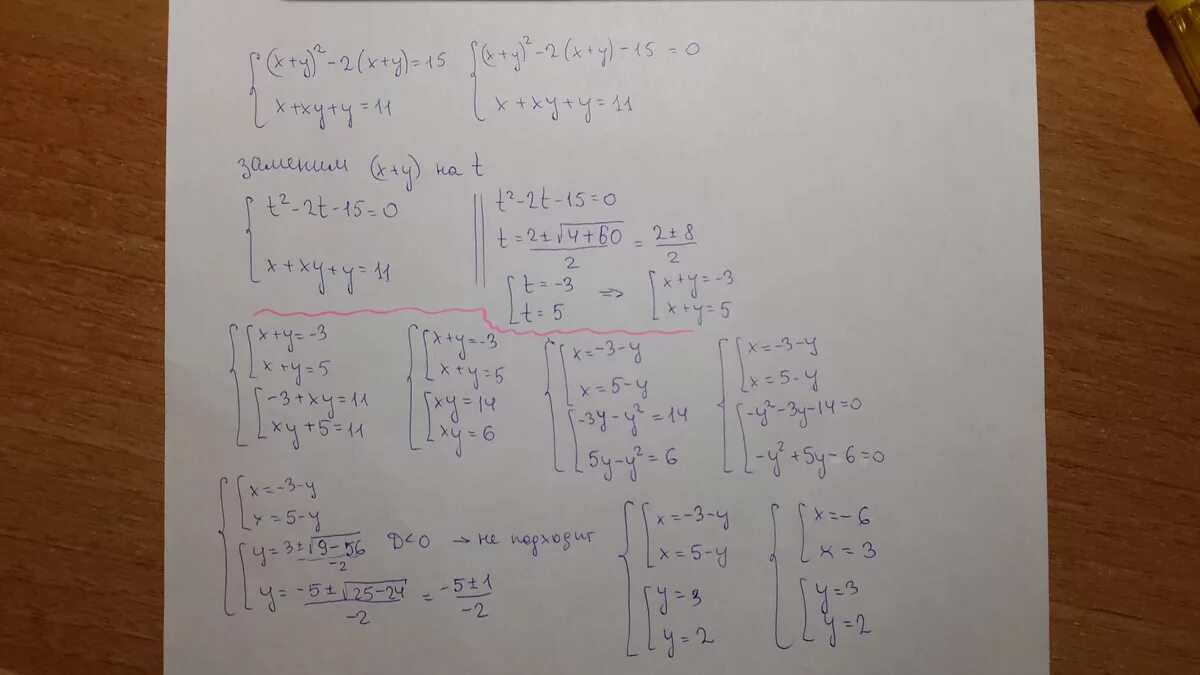 (x+y)² - 2(x+y) = 15
x + xy + y = 11
(x+y)² - 2(x+y) - 15 = 0
x + xy + y = 11
заменим (x+y) на t
t² - 2t - 15 = 0
x + xy + y = 11
t² - 2t - 15 = 0
t = (2 ± √(4+60))/2 = (2 ± 8)/2
t = -3
t = 5
⇒
x+y = -3
x+y = 5
x+y = -3
x+y = 5
-3 + xy = 11
xy + 5 = 11
x+y = -3
x+y = 5
xy = 14
xy = 6
x = -3-y
x = 5-y
-3y - y² = 14
5y - y² = 6
x = -3-y
x = 5-y
-y² - 3y - 14 = 0
-y² + 5y - 6 = 0
x = -3-y
x = 5-y
y = (3 ± √(9-56))/-2 D<0 → не подходит
y = (-5 ± √(25-24))/-2 = (-5 ± 1)/-2
x = -3-y
x = 5-y
y = 3
y = 2
x = -6
x = 3
y = 3
y = 2